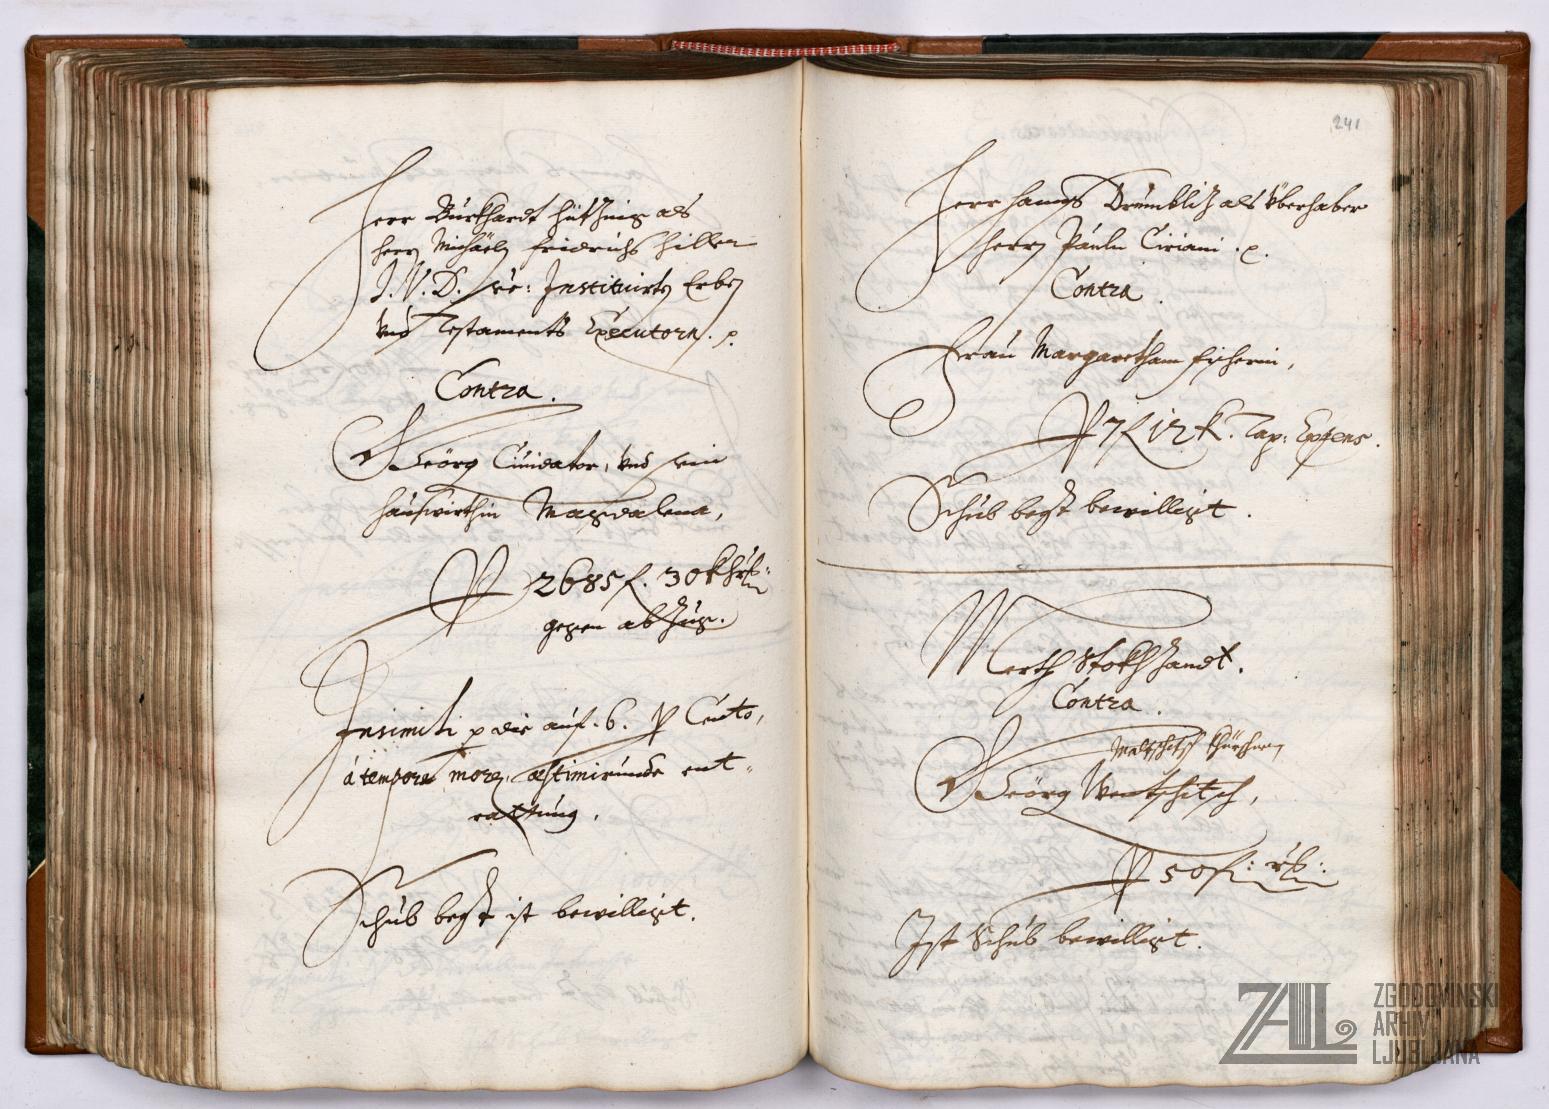 Herr Burkhardt Hüttnig als
herrn Michaeln Fridrichs Hiller
J. V. D. see: Instituirte Erben
vnd Testaments Executorn. p.
Contra.
Geörg Cuvidator, vnd sein
hauswirthin Magdalena,
P 2685 f. 30 kh
gegen abzug.
Insimili p die auf. 6. P Cento,
à tempore morae, æstimirunde ent-
rattung.
Schub begert ist bewilligt.
241
Herr Hanns Drumblitz als Überhaber
herrn Paulu Ciriani. p.
Contra.
Frau Margaretham Fischerin,
P 7 f 12 k. Tax: Expens.
Schub begert bewilligt.
Merth Stokhzandt.
Contra.
Geörg Wentschitsch,
P 50 f:
Ist Schub bewilligt.
ZAL
ZGODOVINSKI
ARHIV
LJUBLJANA